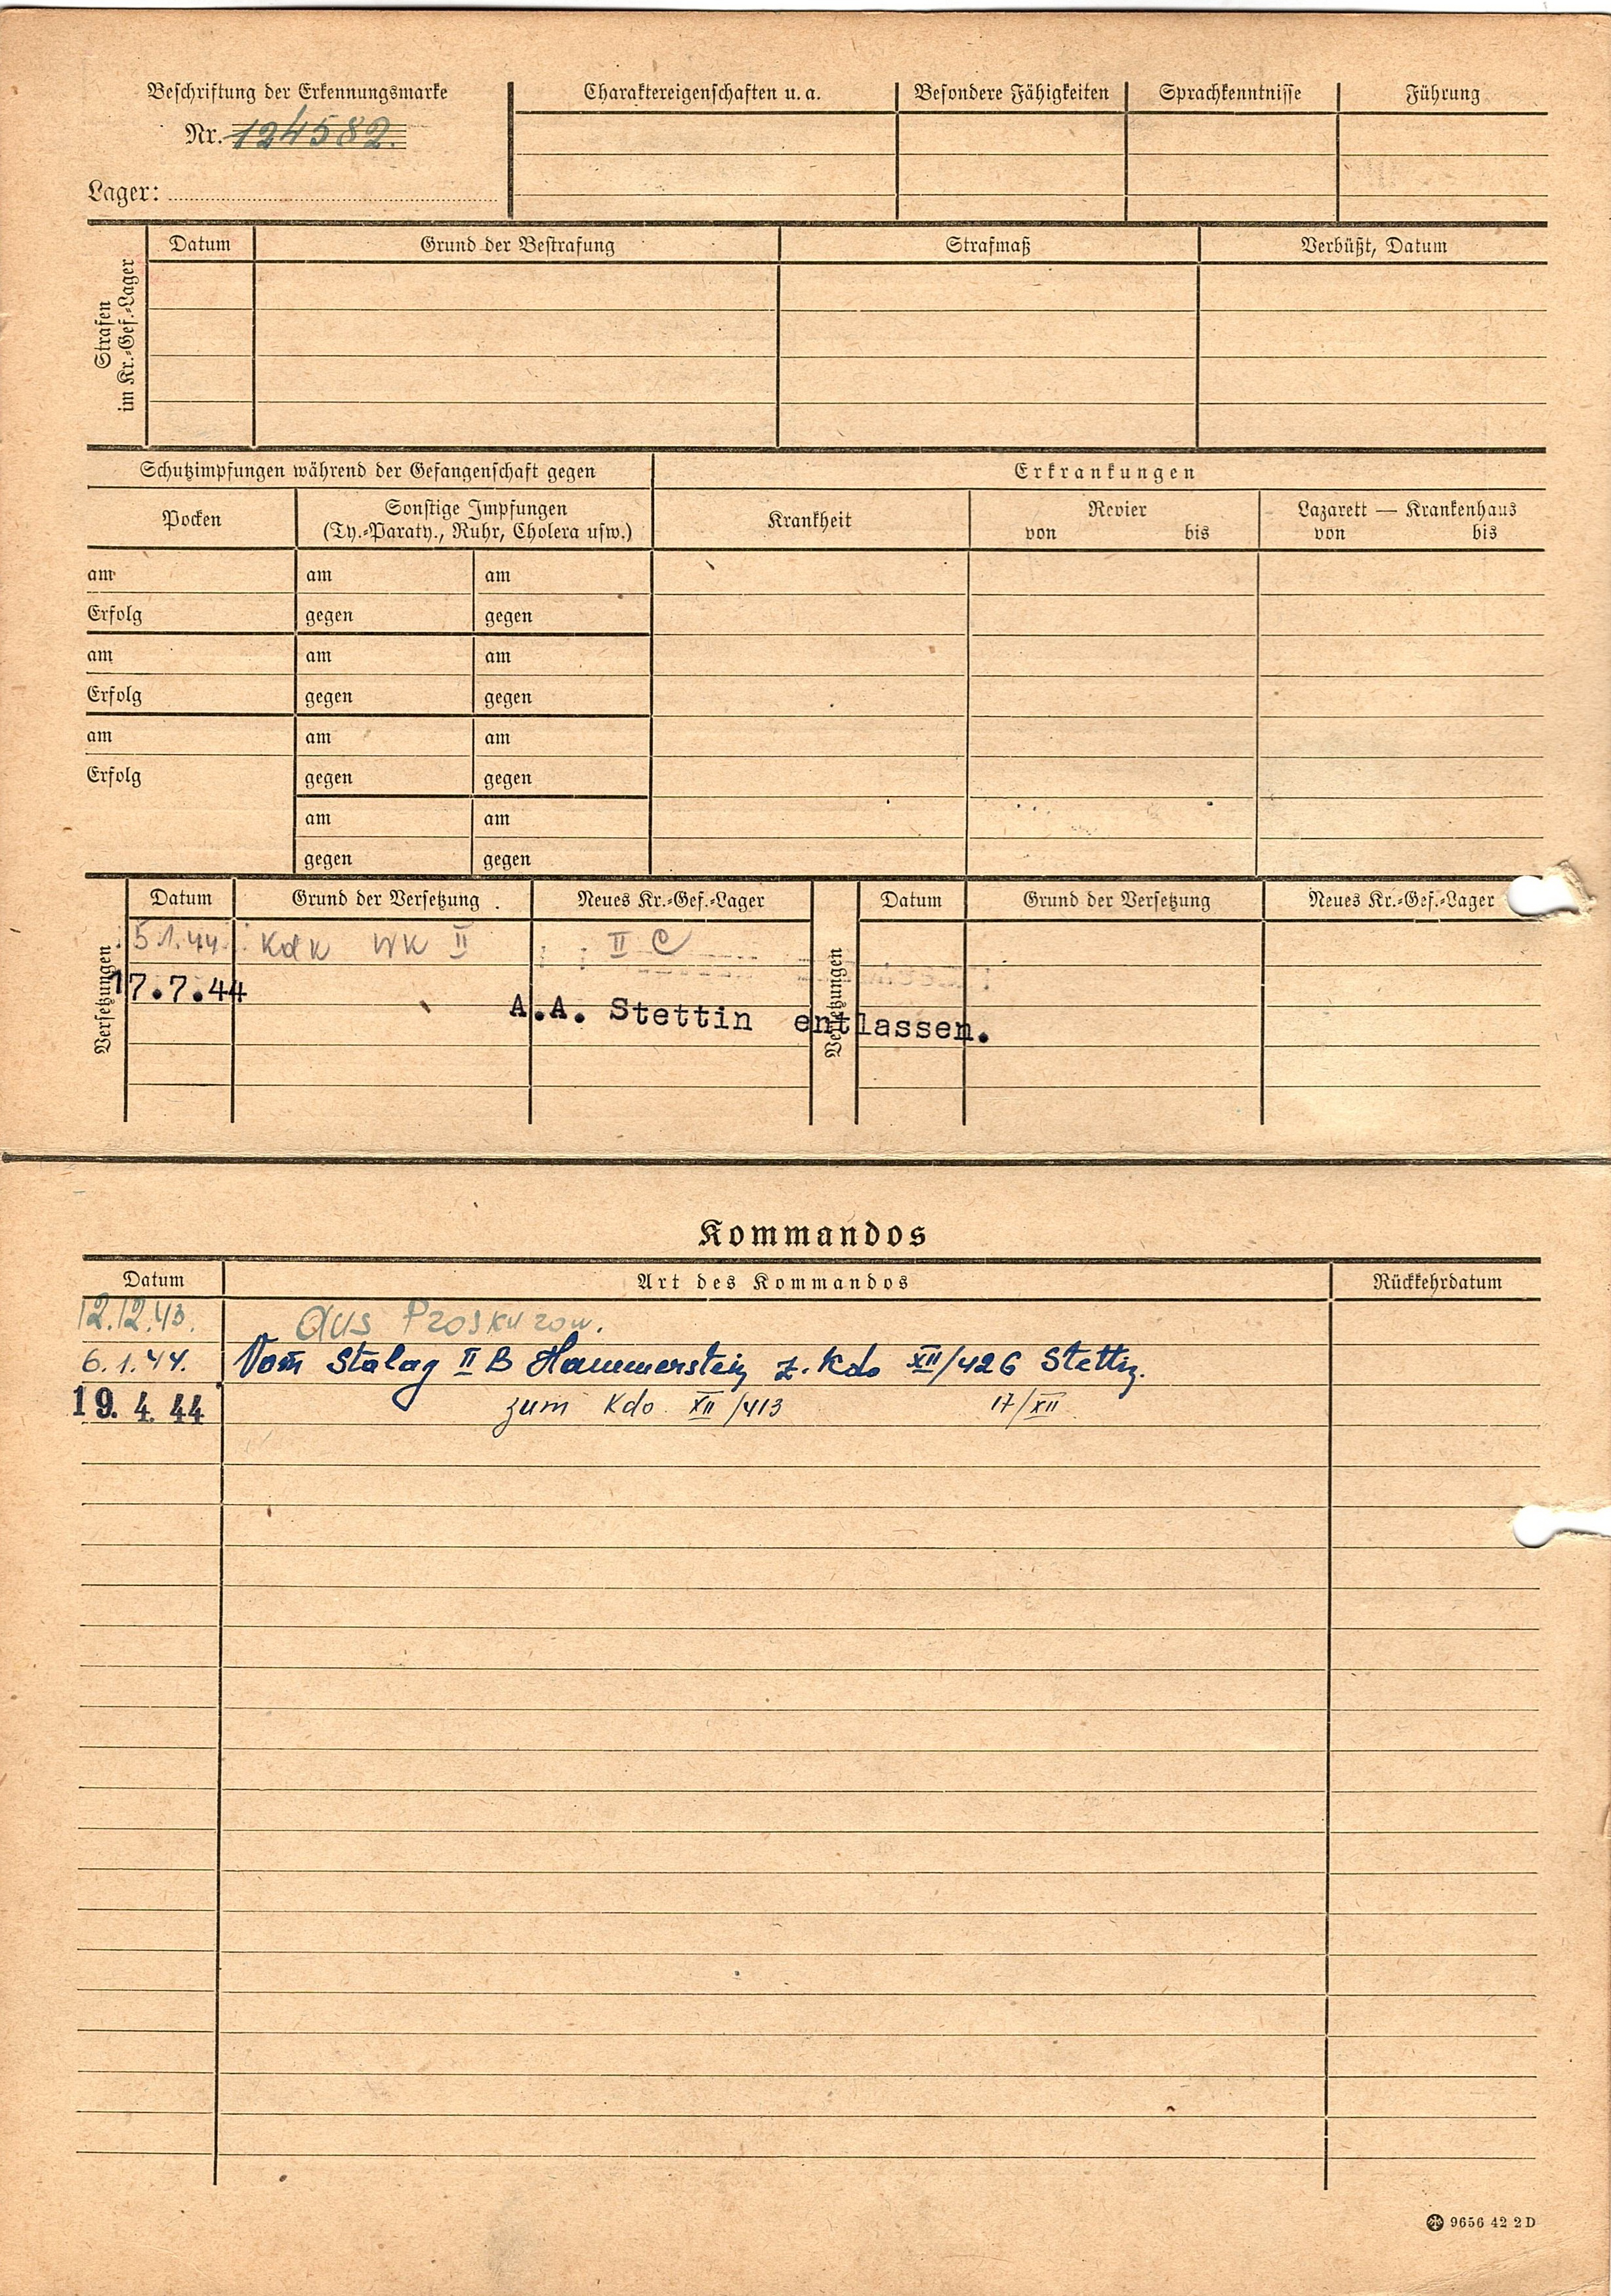 Beschriftung der Erkennungsmarke
Nr. 124582.
Lager:
Charaktereigenschaften u. a.
Besondere Fähigkeiten
Sprachkenntnisse
Führung
Strafen
im Kr.-Gef.-Lager
Datum
Grund der Bestrafung
Strafmaß
Verbüßt, Datum
Schutzimpfungen während der Gefangenschaft gegen
Erkrankungen
Pocken
Sonstige Impfungen
(Ty.-Paraty., Ruhr, Cholera usw.)
Krankheit
Revier
von bis
Lazarett — Krankenhaus
von bis
am am am
Erfolg gegen gegen
am am am
Erfolg gegen gegen
am am am
Erfolg gegen gegen
am am
gegen gegen
Versetzungen
Datum
Grund der Versetzung
Neues Kr.-Gef.-Lager
Versetzungen
Datum
Grund der Versetzung
Neues Kr.-Gef.-Lager
5.1.44. WK II II C
17.7.44
A.A. Stettin entlassen.
Kommandos
Datum
Art des Kommandos
Rückkehrdatum
12.12.43. aus Proskurow.
6.1.44. Vom Stalag II B Hammerstein z. Kdo XII/426 Stettin.
19. 4. 44 zum Kdo. XII/413 17/XII
9656 42 2 D